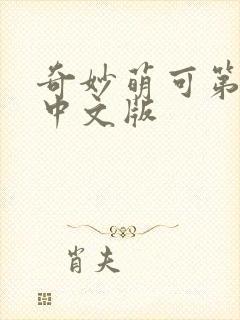 奇妙萌可第
中文版
肖夫